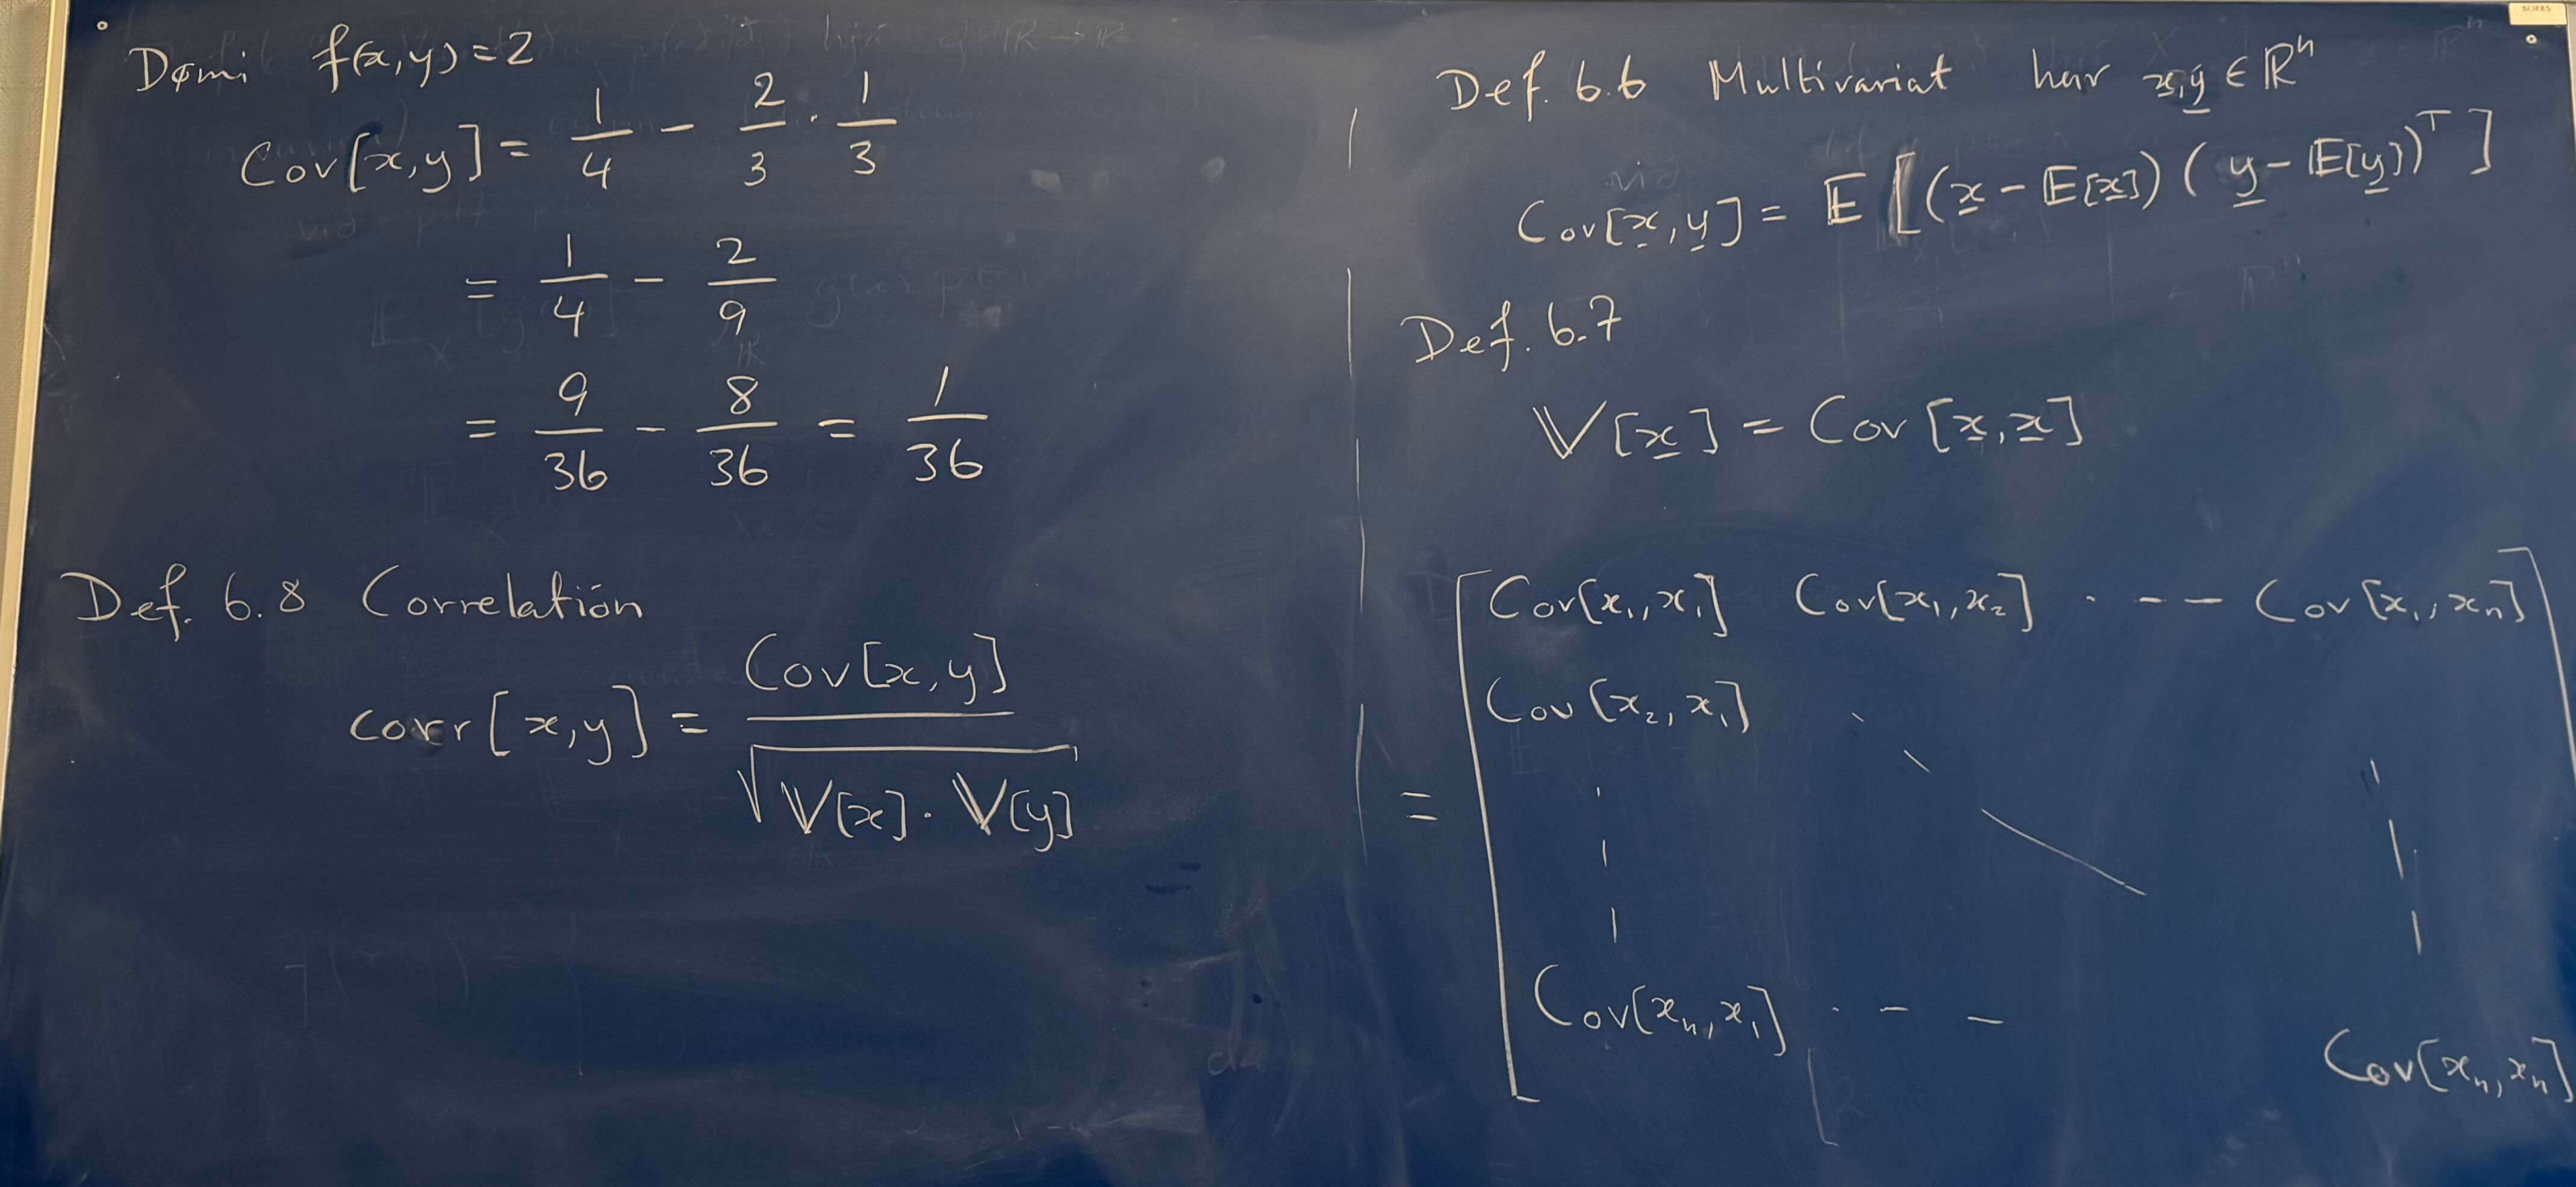 Dømi f(x,y)=2
Cov[x,y] = 1/4 - 2/3 · 1/3
= 1/4 - 2/9
= 9/36 - 8/36 = 1/36
Def. 6.8 Correlation
corr[x,y] = Cov[x,y] / √(𝕍[x]·𝕍[y])
Def. 6.6 Multivariat har x̲,y̲ ∈ ℝⁿ
Cov[x̲,y̲] = 𝔼[(x̲-𝔼[x̲])(y̲-𝔼[y̲])ᵀ]
Def. 6.7
𝕍[x̲] = Cov[x̲,x̲]
= [ Cov[x₁,x₁] Cov[x₁,x₂] · - - Cov[x₁,xₙ]
Cov[x₂,x₁]
Cov[xₙ,x₁] · - - Cov[xₙ,xₙ] ]